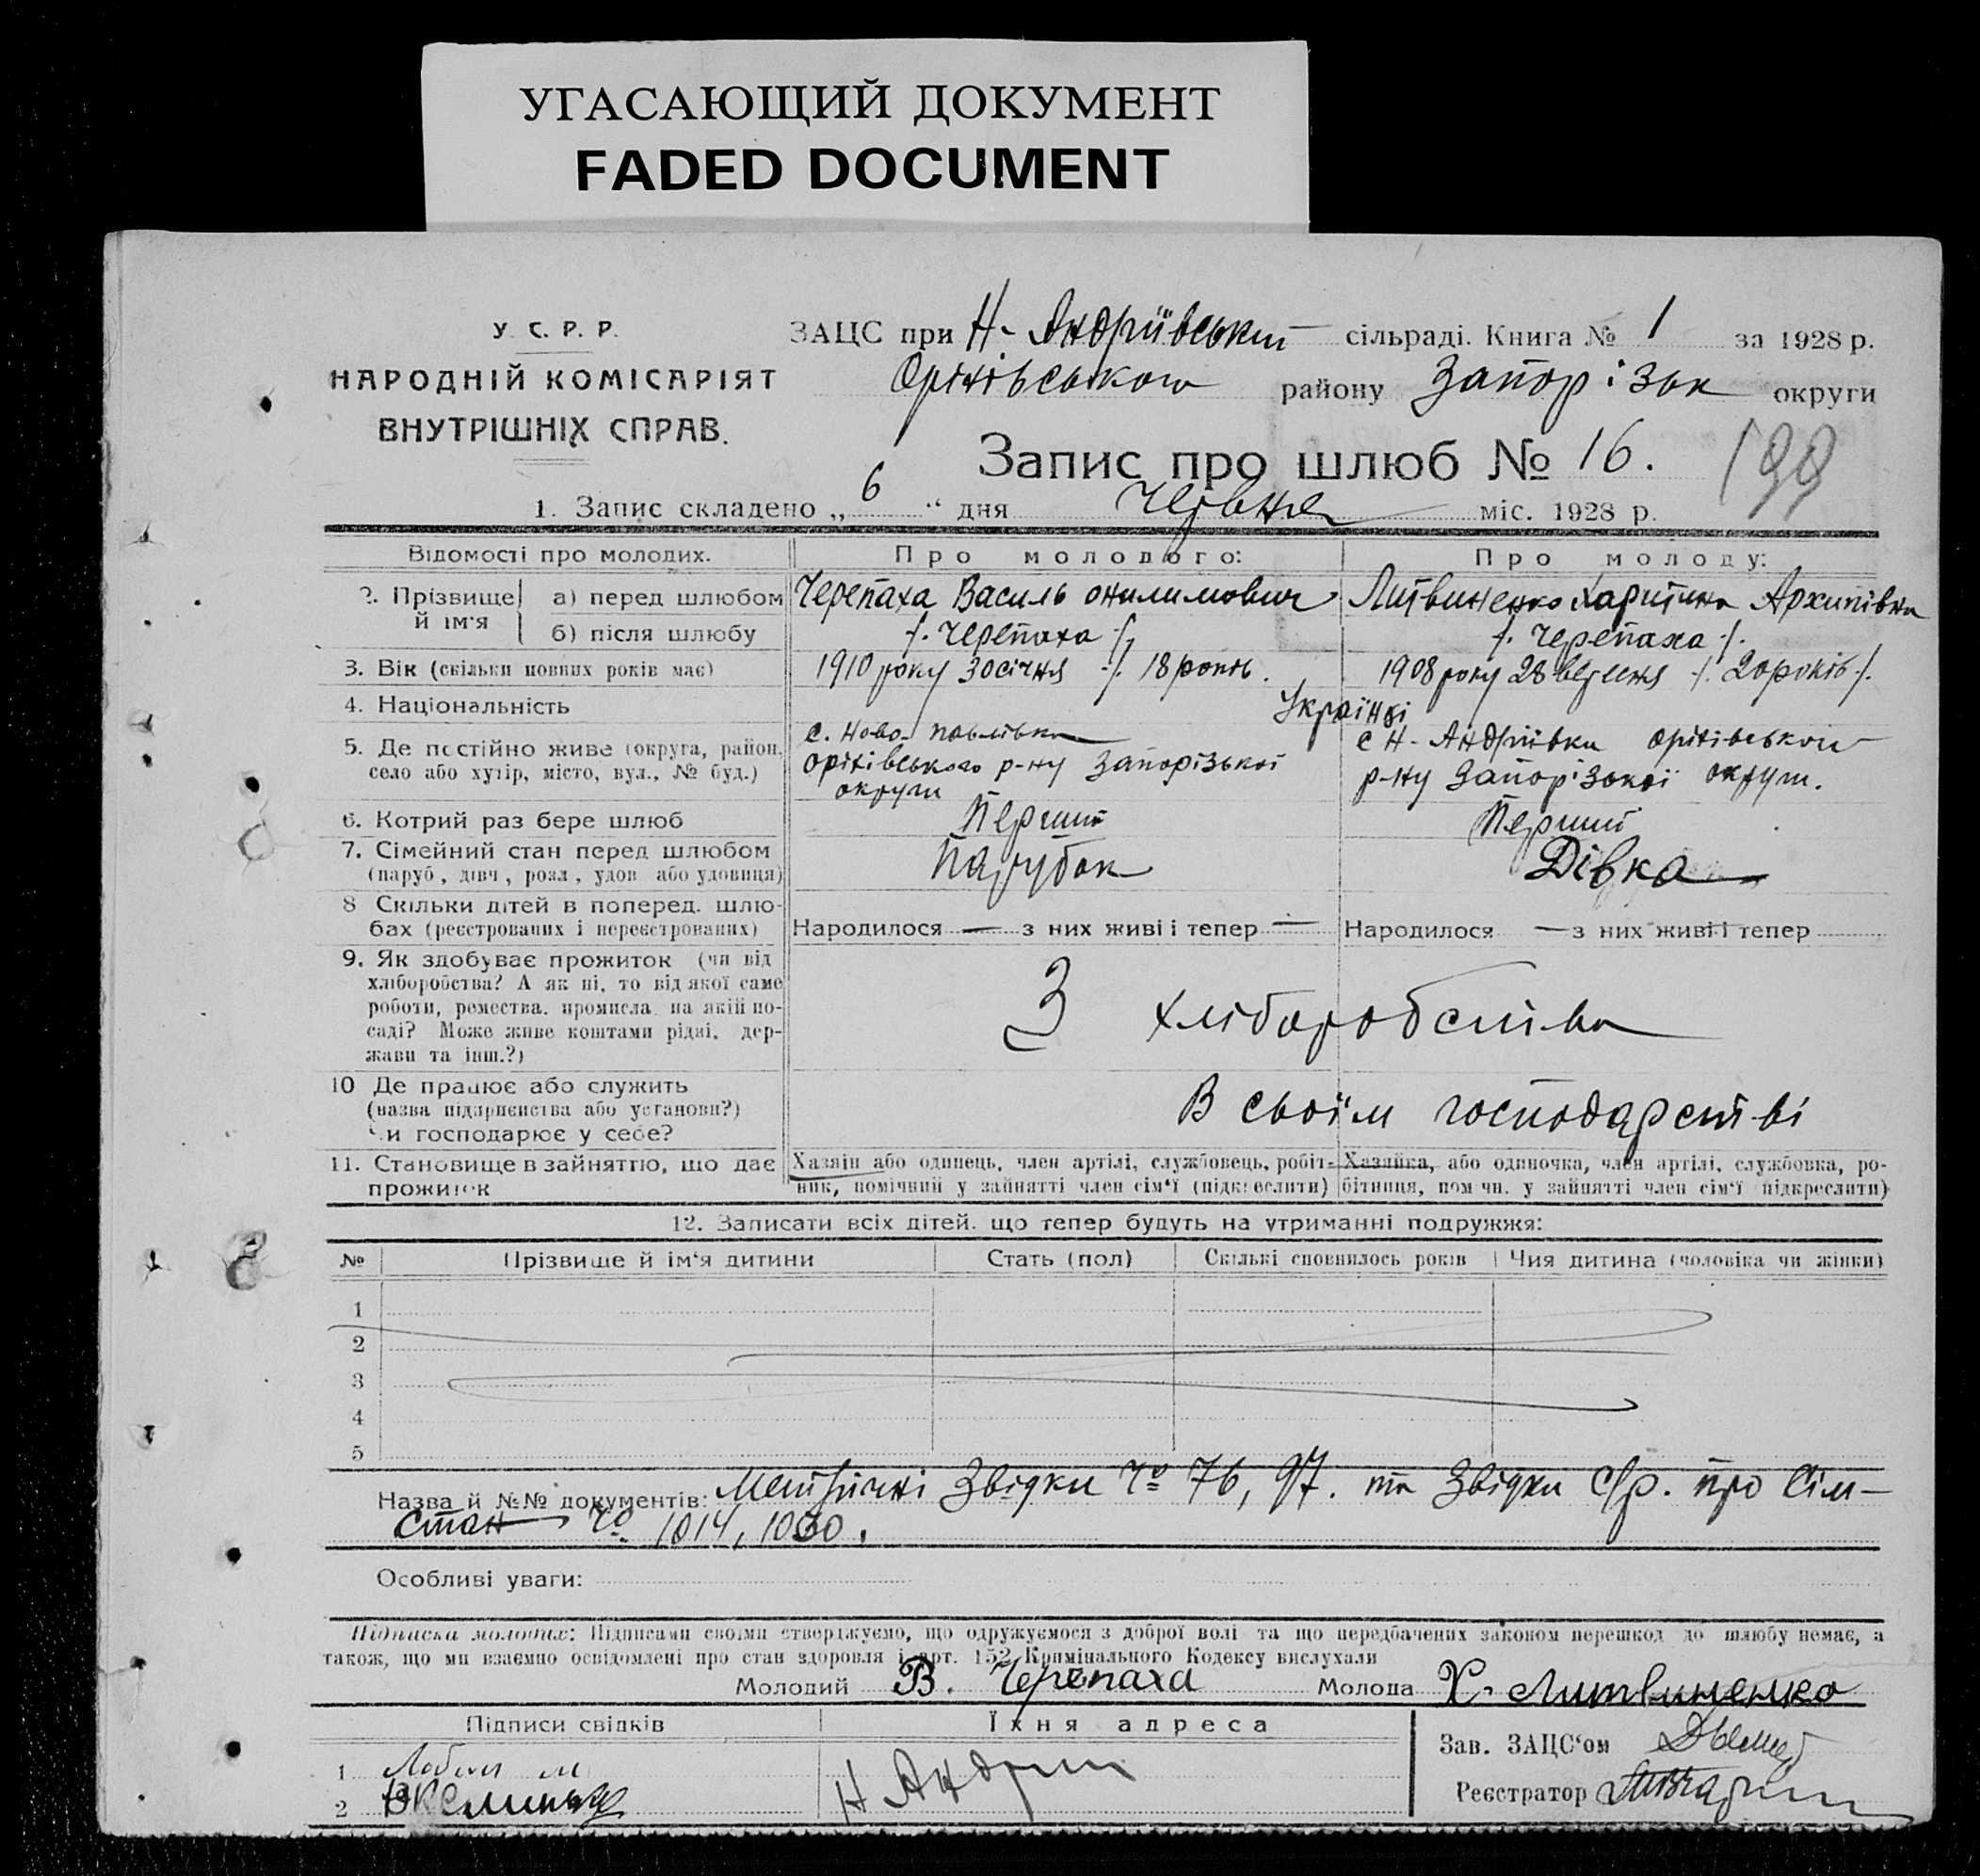 УГАСАЮЩИЙ ДОКУМЕНТ
FADED DOCUMENT
У. С. Р. Р.
НАРОДНІЙ КОМІСАРІЯТ
ВНУТРІШНІХ СПРАВ.
ЗАЦС при Н-Андріївській сільраді. Книга № 1 за 1928 р.
Оріхівського району Запорізьк округи
Запис про шлюб № 16.
199
1. Запис складено „ 6 “ дня Червня міс. 1928 р.
Відомості про молодих. Про молодого: Про молоду:
2. Прізвище й ім'я а) перед шлюбом Черепаха Василь Литвиненко Харитина Архипівна
б) після шлюбу /. Черепаха ./ /. Черепаха ./
3. Вік (скільки повних років має) 1910 року 30 січня ./. 18 років. 1908 року 28 вересня ./. 20 років ./.
4. Національність Українці
5. Де постійно живе (округа, район, село або хутір, місто, вул., № буд.)
с. Ново-Павлівка
оріхівського р-ну Запорізької
округи
с Н-Андріївки оріхівського
р-ну Запорізької округи.
6. Котрий раз бере шлюб Перший Перший
7. Сімейний стан перед шлюбом Парубок Дівка
(паруб., дівч., розл., удов. або удовиця)
8 Скільки дітей в поперед. шлю-
бах (реєстрованих і нереєстрованих) Народилося — з них живі і тепер — Народилося — з них живі і тепер
9. Як здобуває прожиток (чи від
хліборобства? А як ні, то від якої саме
роботи, ремества, промисла, на якій по-
саді? Може живе коштами рідні, дер-
жави та інш.?)
З хліборобства
10 Де працює або служить
(назва підприємства або установи?)
Чи господарює у себе?
В своїм господарстві
11. Становище в зайняттю, що дає
прожиток
Хазяїн або одинець, член артілі, службовець, робіт-
ник, помічний у зайнятті член сім'ї (підкреслити)
Хазяйка, або одиночка, член артілі, службовка, ро-
бітниця, помічн. у зайнятті член сім'ї (підкреслити)
12. Записати всіх дітей, що тепер будуть на утриманні подружжя:
№ Прізвище й ім'я дитини Стать (пол) Скількі сповнилось років Чия дитина (чоловіка чи жінки)
1
2
3
4
5
Назва й №№ документів: Метричні Звідки Чо 76, 97. та Звідки с/р. про Сім-
стан Чо 1014, 1030.
Особливі уваги:
Підписка молодих: Підписами своїми стверджуємо, що одружуємося з доброї волі та що передбачених законом перешкод до шлюбу немає, а
також, що ми взаємно освідомлені про стан здоровля і арт. 152 Кримінального Кодексу вислухали
Молодий В. Черепаха Молода Х. Литвиненко
Підписи свідків Їхня адреса
1
2
Н Андрии
Зав. ЗАЦС'ом
Реєстратор